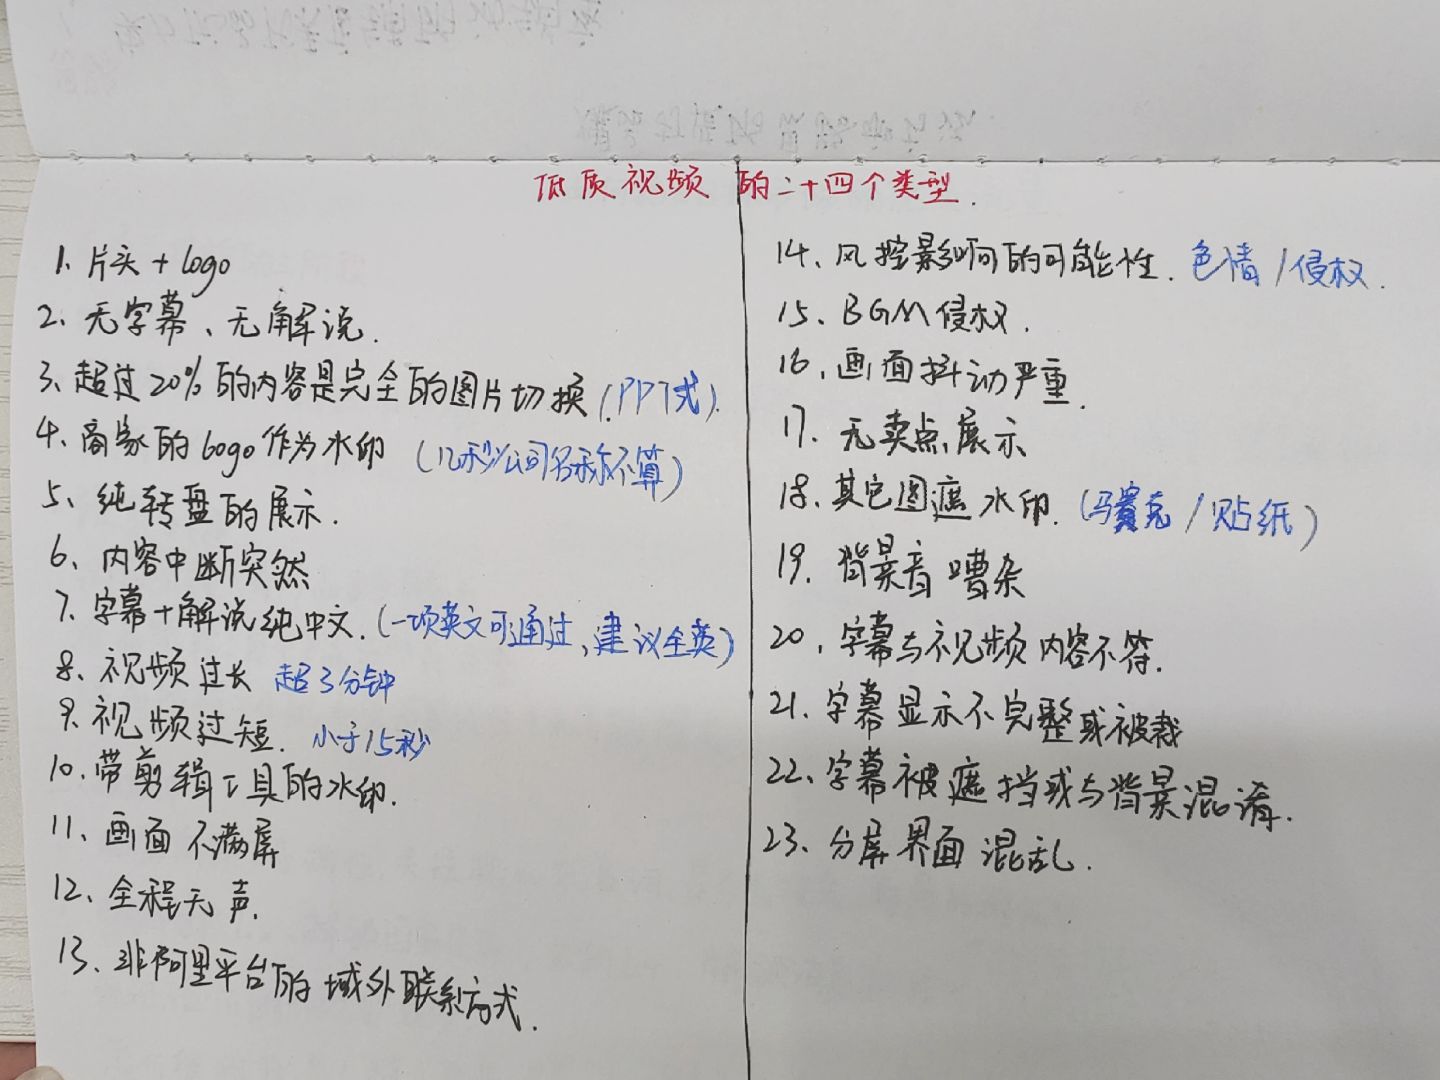 低质视频的二十四个类型.
1、片头+logo
2、无字幕、无解说.
3、超过20%的内容是完全的图片切换(PPT式).
4、商家的logo作为水印 (几秒公司名称不算)
5、纯转盘的展示.
6、内容中断突然
7、字幕+解说纯中文.(一项英文可通过、建议全英)
8、视频过长 超3分钟
9、视频过短. 小于15秒
10、带剪辑工具的水印.
11、画面不满屏
12、全程无声.
13、非阿里平台的域外联系方式.
14、风控影响的可能性. 色情/侵权.
15、BGM侵权.
16、画面抖动严重.
17、无卖点展示
18、其它图遮水印.(马赛克/贴纸)
19、背景音嘈杂
20、字幕与视频内容不符.
21、字幕显示不完整或被裁
22、字幕被遮挡或与背景混淆.
23、分屏界面混乱.